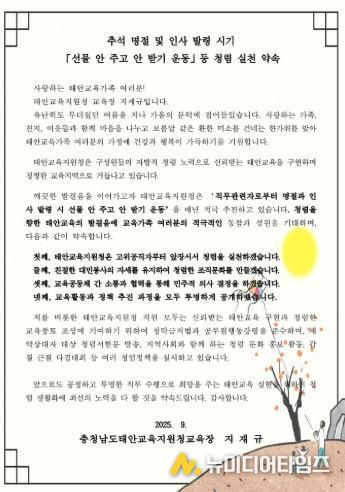 추석 명절 및 인사 발령 시기
「선물 안 주고 안 받기 운동」 등 청렴 실천 약속
사랑하는 태안교육가족 여러분!
태안교육지원청 교육장 지재규입니다.
유난히도 무더웠던 여름을 지나 가을의 문턱에 접어들었습니다. 사랑하는 가족,
친지, 이웃들과 함께 마음을 나누고 보름달 같은 환한 미소를 건네는 한가위를 맞아
태안교육가족 여러분의 가정에 건강과 행복이 가득하기를 기원합니다.
태안교육지원청은 구성원들의 자발적 청렴 노력으로 신뢰받는 태안교육을 구현하며
청정한 교육지역으로 거듭나고 있습니다.
깨끗한 발걸음을 이어가고자 태안교육지원청은 '직무관련자로부터 명절과 인
사 발령 시 선물 안 주고 안 받기 운동'을 매년 적극 추진하고 있습니다. 청렴을
향한 태안교육의 발걸음에 교육가족 여러분의 적극적인 동참과 성원을 기대하며,
다음과 같이 약속합니다.
첫째, 태안교육지원청은 고위공직자부터 앞장서서 청렴을 실천하겠습니다.
둘째, 친절한 대민봉사의 자세를 유지하여 청렴한 조직문화를 만들겠습니다.
셋째, 교육공동체 간 소통과 협력을 통해 민주적 의사 결정을 하겠습니다.
넷째, 교육활동과 정책 추진 과정을 모두 투명하게 공개하겠습니다.
저를 비롯한 태안교육지원청 직원 모두는 신뢰받는 태안교육 구현과 청렴한
교육풍토 조성에 기여하기 위하여 청탁금지법과 공무원행동강령을 준수하며, 계
약상대자 대상 청렴서한문 발송, 지역사회와 함께 하는 청렴 문화 홍보 활동, 갑
질 근절 다짐대회 등 여러 청렴정책을 실시하고 있습니다.
앞으로도 공정하고 투명한 직무 수행으로 희망을 주는 태안교육 실현을 위하여 청
렴 생활화에 최선의 노력을 다 할 것을 약속드립니다. 감사합니다.
2025. 9.
충청남도태안교육지원청교육장 지 재 규
뉴미디어타임즈